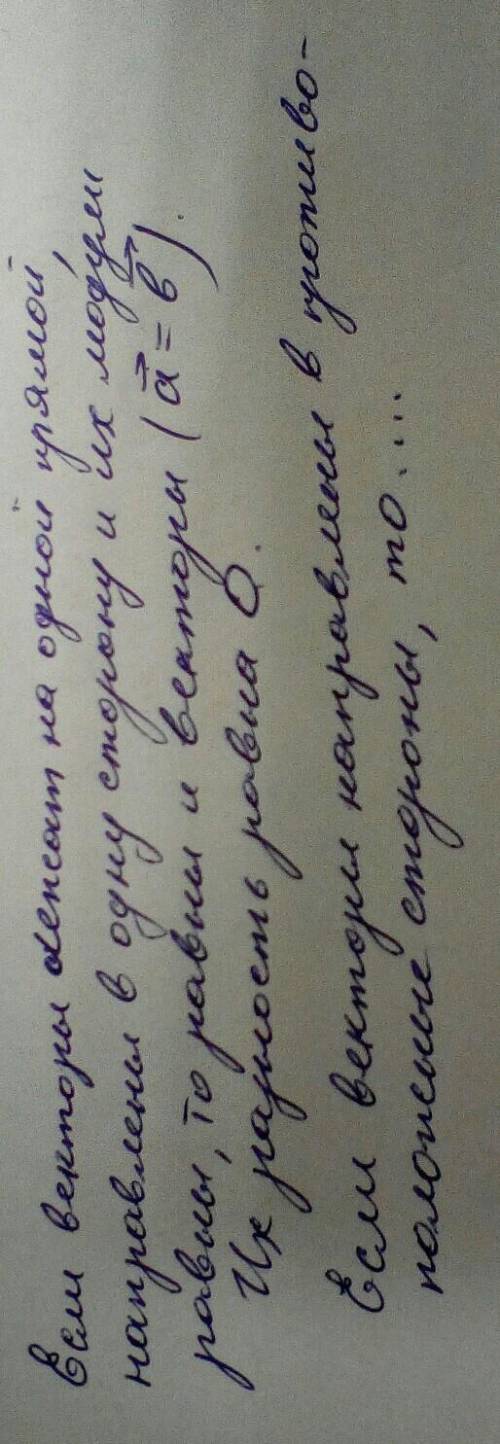 Если векторы лежат на одной прямой,
направлены в одну сторону и их модули
равны, то равны и векторы (a⃗ = b⃗).
Их разность равна 0.
Если векторы направлены в противо-
положные стороны, то....